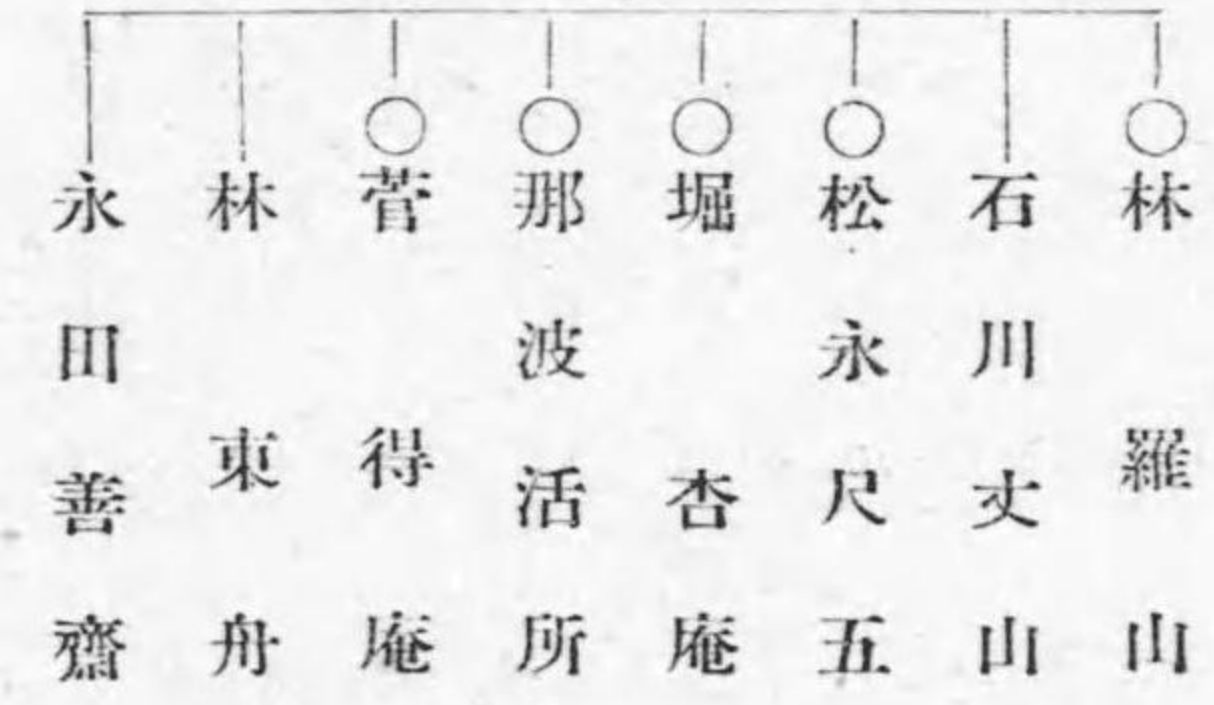 ○林羅山
石川丈山
○松永尺五
○堀杏庵
○那波活所
○菅得庵
林東舟
永田善齋